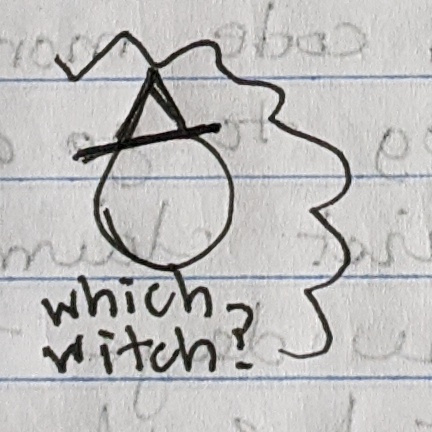 which
witch?